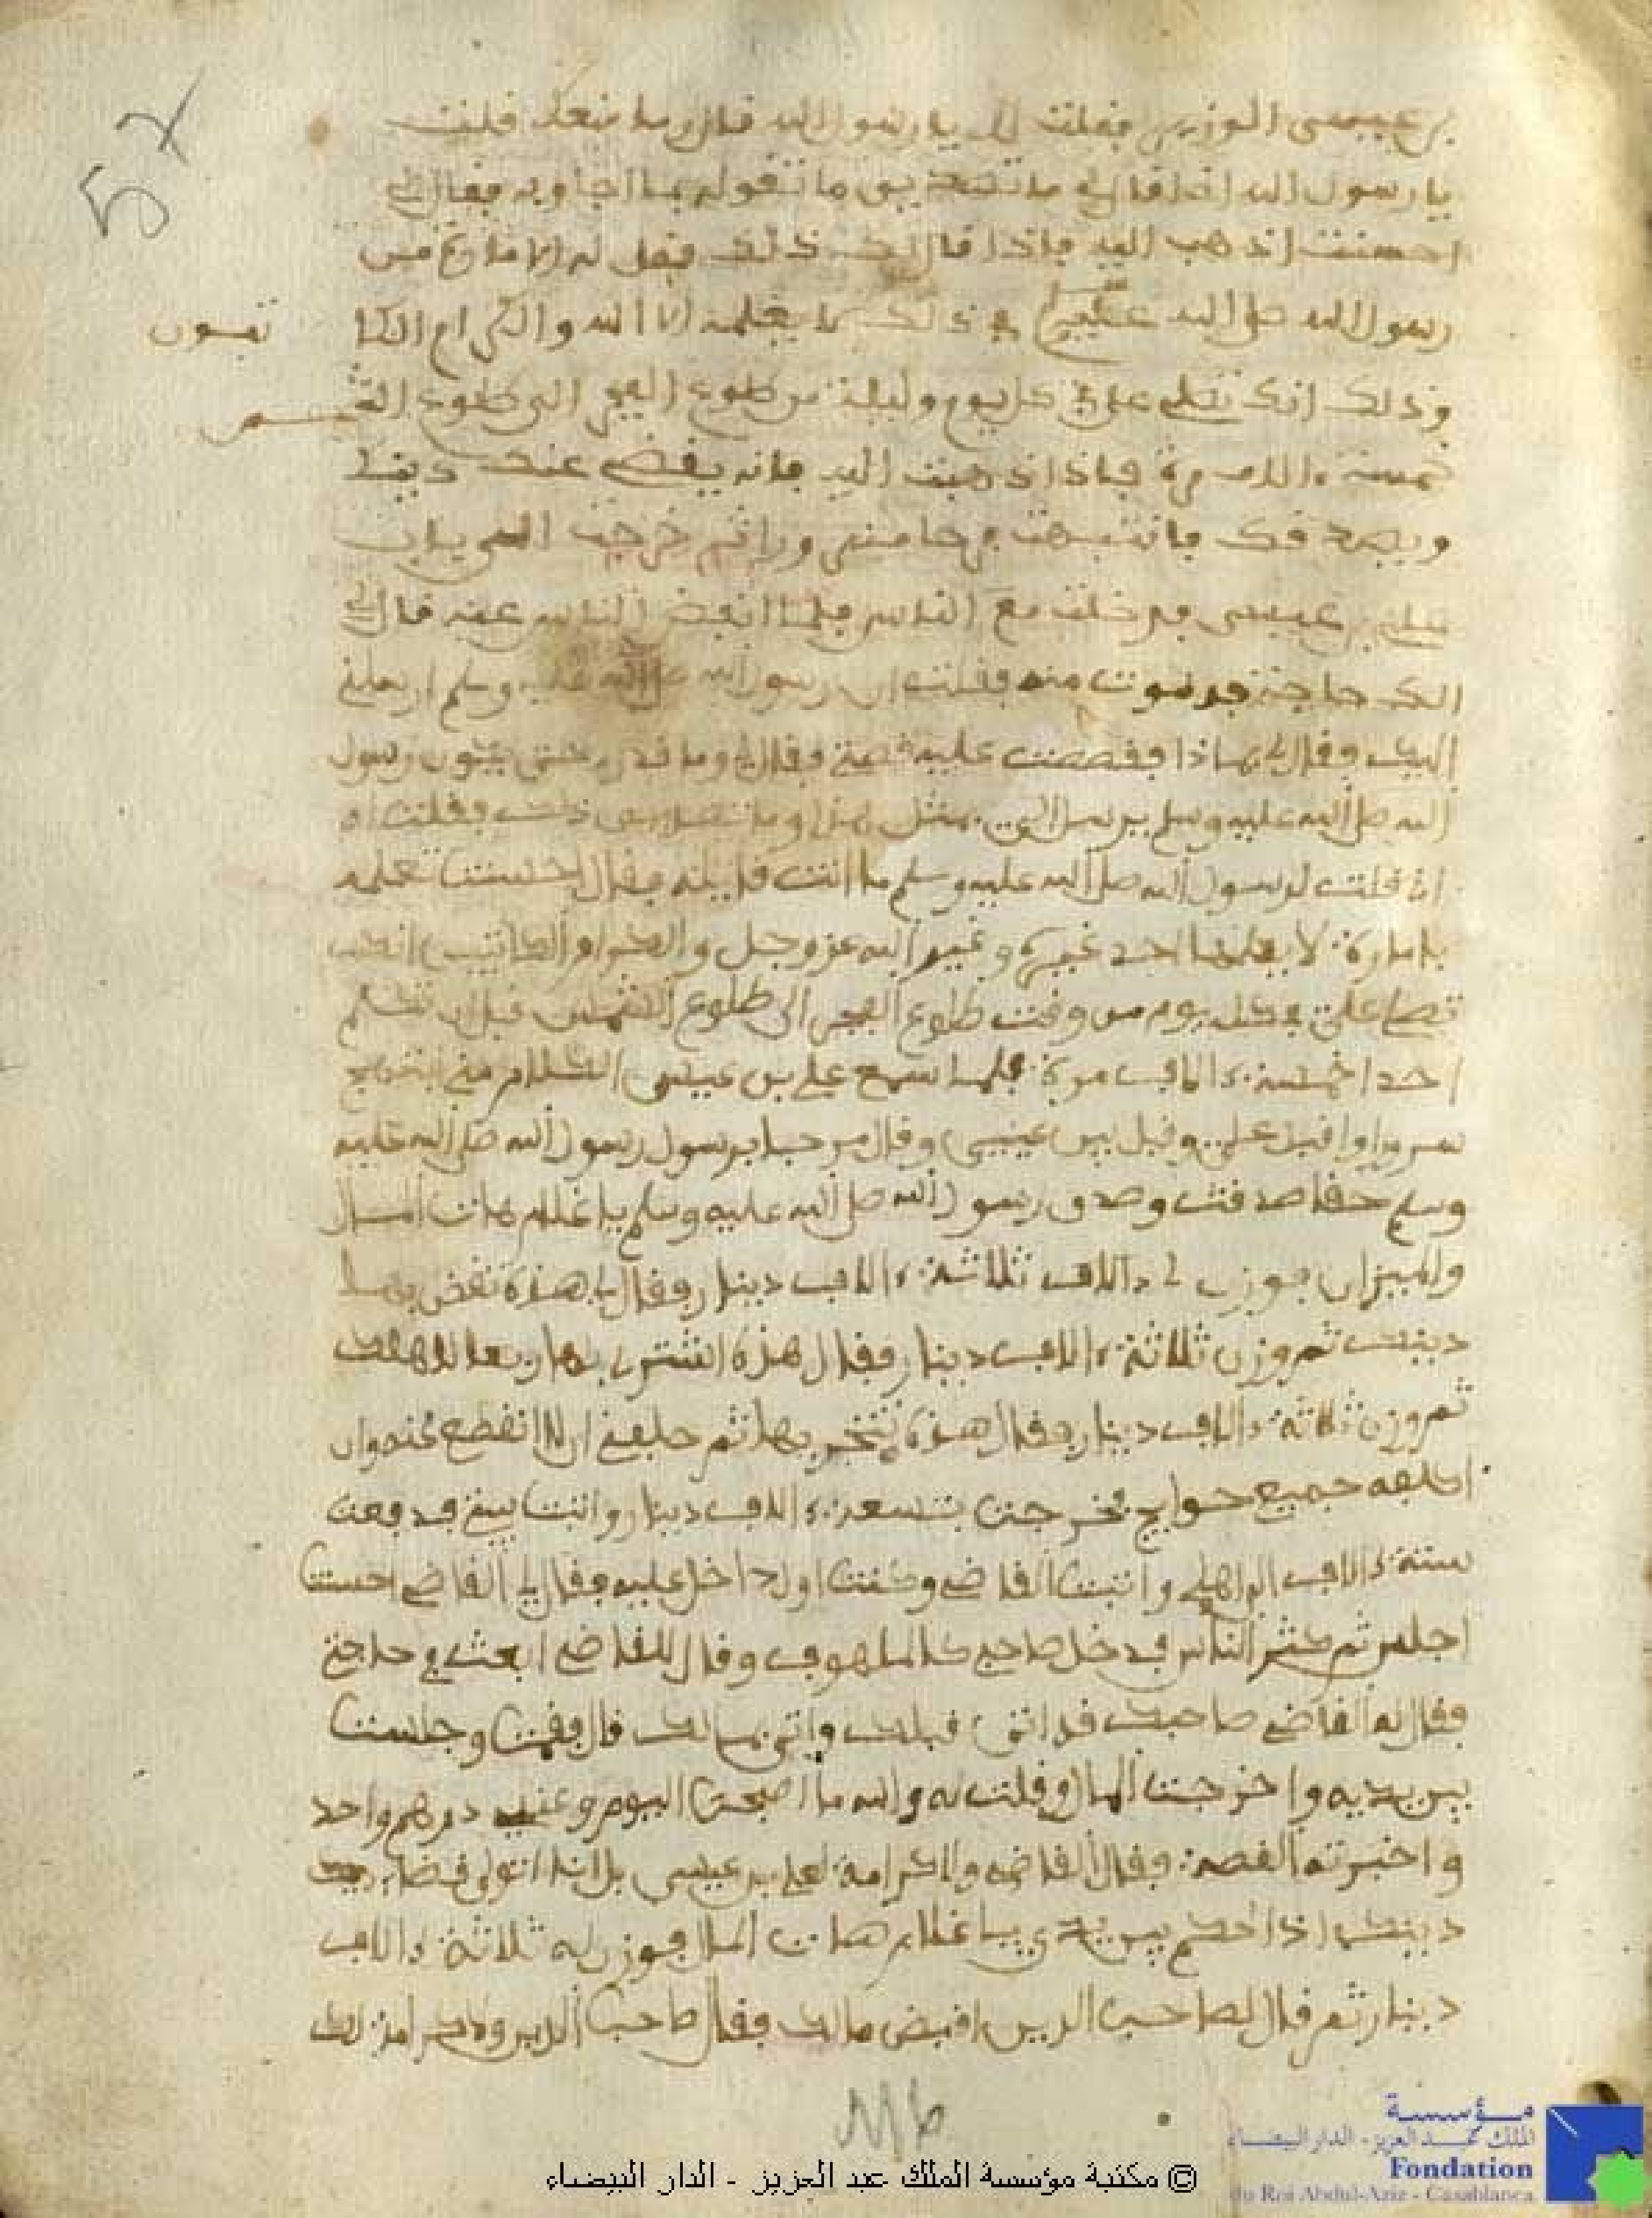 بن عيسى الوزير فقلت لا يا رسول الله قال وما منعك قلت
يا رسول الله اذا قال لي ما تصديق ما تقوله بما اجاوبه فقال لي
احسنت اذهب اليه فاذا قال لك ذلك فقل له الامارة من
رسول الله صلى الله عليه وسلم في ذلك لا يعلمه الا الله والكرام الكا
تبون
وذلك انك تصلي علي في كل يوم وليلة من طلوع الفجر الى طلوع الشمس
خمسة ءالاف مرة فاذا ذهبت اليه فانه يقضي عنك دينك
ويصدقك فانتبهت من منامي خرجت الى باب
علي بن عيسى فدخلت مع الناس فلما انفض الناس عنه قال لي
الك حاجة فدنوت منه فقلت ان رسول الله صلى الله عليه وسلم ارسلني
اليك وقال لي بماذا فقصصت عليه قصتي وقال لي وما قدري حتى يكون رسول
الله صلى الله عليه وسلم يرسل الي بمثل هذا وما تصديق ذلك فقلت له
اني قلت لرسول الله صلى الله عليه وسلم ما انت قايله فقال احسنت تعلمه
بامارة لا يعلمها احد غيره وغير الله عز وجل والكرام الكاتبين انك
تصلي علي في كل يوم من وقت طلوع الفجر الى طلوع الشمس قبل ان تكلم
احدا خمسة ءالاف مرة فلما سمع علي بن عيسى الكلام مني
سرورا واقبل علي وقبل بين عيني وقال مرحبا برسول رسول الله صلى الله عليه
وسلم حقا صدقت وصدق رسول الله صلى الله عليه وسلم يا غلام هات المال
والميزان فوزن لي ءالاف ثلاثة ءالاف دينار وقال لي هذه تقض بها
دينك ثم وزن ثلاثة ءالاف دينار وقال هذه اشتر بها ربعا لاهلك
ثم وزن ثلاثة ءالاف دينار وقال هذه تتجر بها ثم حلفني ان لا انقطع عنه وان
اكلفه جميع حوايجي فخرجت بتسعة ءالاف دينار واتيت بيتي فدفعت
ستة ءالاف الى اهلي واتيت القاضي وكنت اول داخل عليه فقال لي القاضي احسنت
اجلس ثم كثر الناس فدخل صاحبي كالملهوف وقال للقاضي ابعث في حاجتي
فقال له القاضي صاحبك قد اتى قبلك واتى بمالك قال فقمت وجلست
بين يديه واخرجت المال وقلت له والله ما اصبحت اليوم وعندي درهم واحد
واخبرته القصة فقال القاضي والكرامة لعلي بن عيسى بل انا اتولى قضاء
دينك اذا احكم بين يدي يا غلام هات المال فوزن له ثلاثة ءالاف
دينار ثم قال لصاحب الدين اقبض مالك فقال صاحب الدين ولا كرامة لك
© مكتبة مؤسسة الملك عبد العزيز - الدار البيضاء
مؤسسة
الملك عبد العزيز - الدار البيضاء
Fondation
du Roi Abdul-Aziz - Casablanca